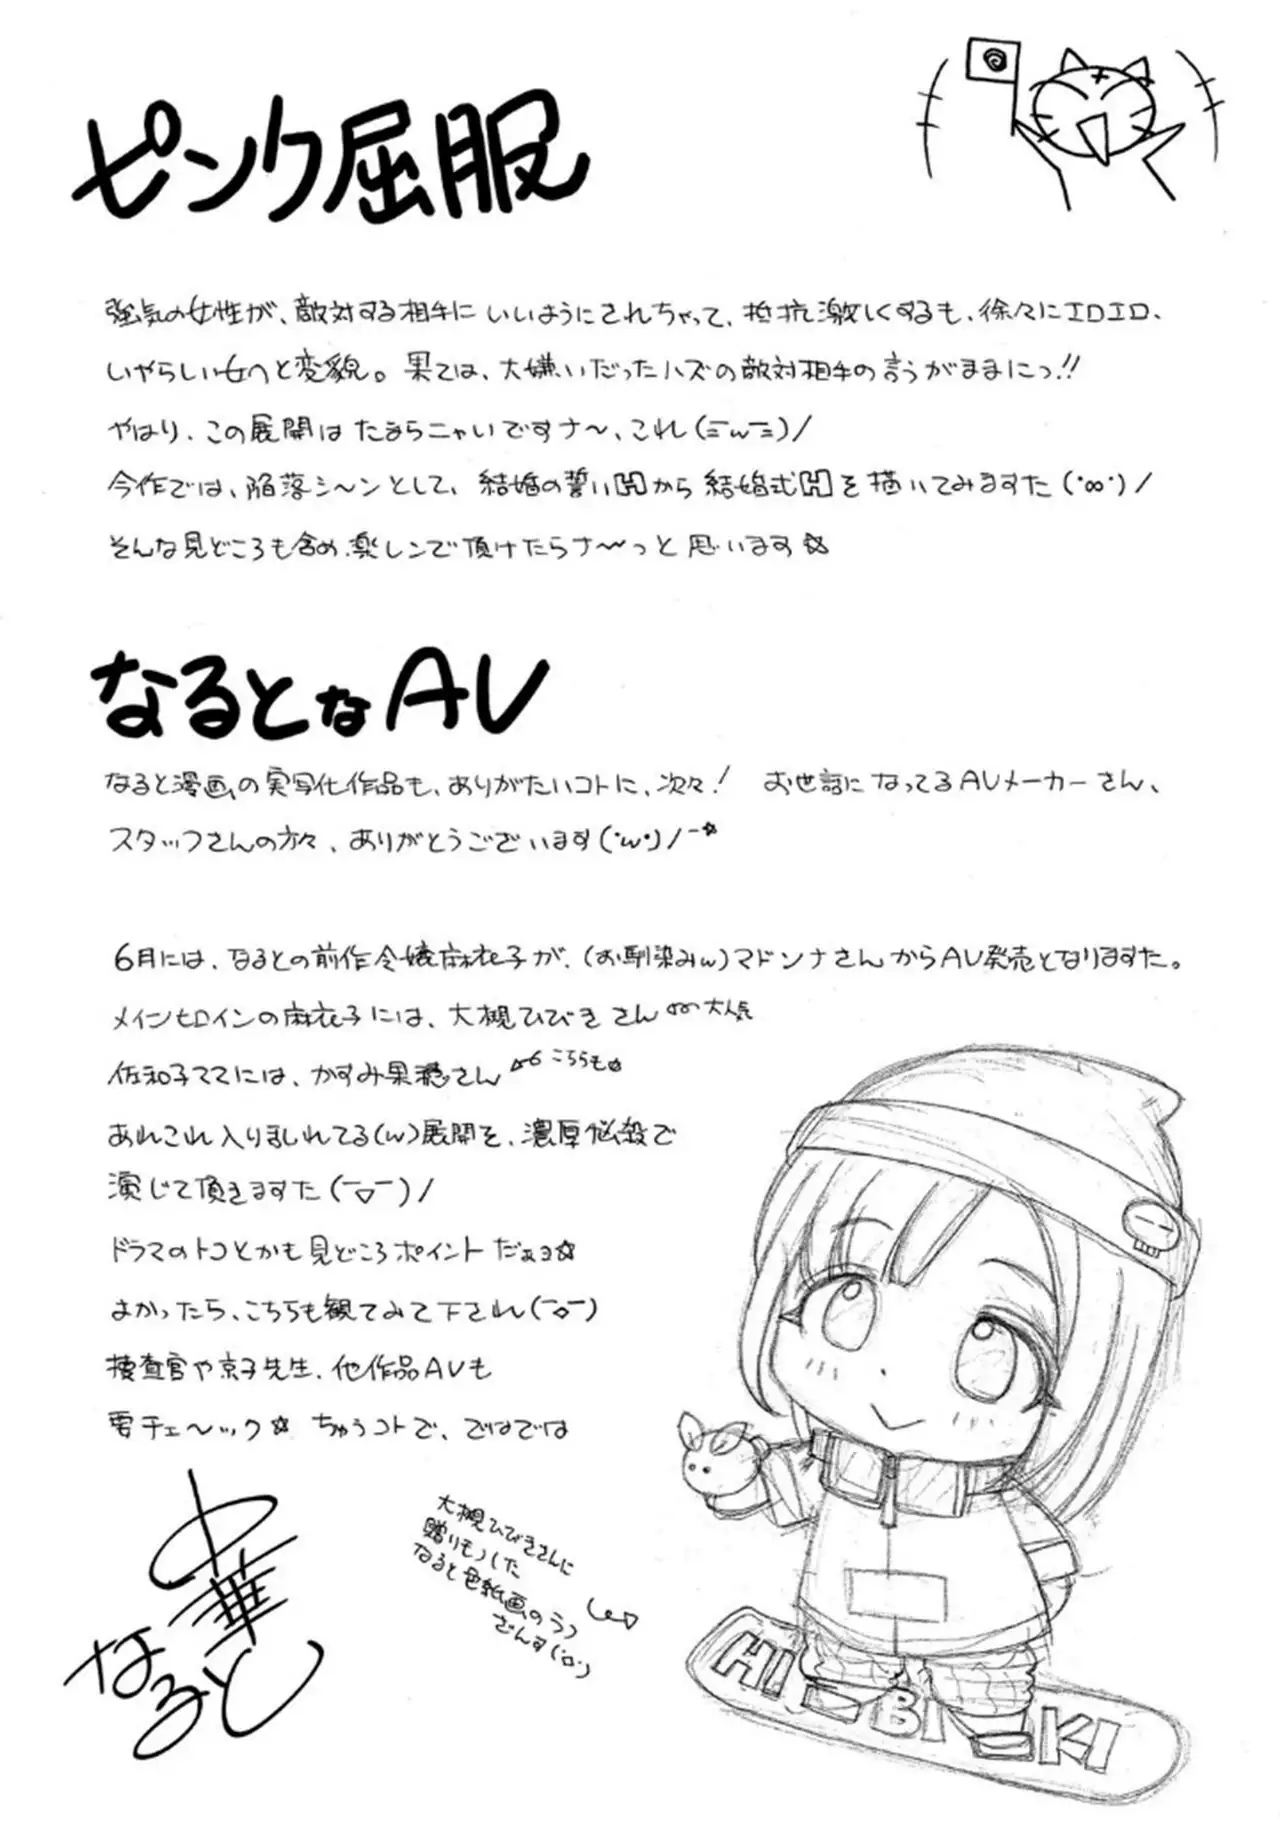 ピンク屈服
強気の女性が、敵対する相手にいいようにされちゃって、抵抗激しくするも、徐々にエロエロ、
いやらしい女へと変貌。果ては、大嫌いだったハズの敵対相手の言うがままにっ!!
やはり、この展開はたまらニャいですナ〜、これ(≡ω≡)/
今作では、陥落シ〜ンとして、結婚の誓いHから結婚式Hを描いてみますた(・∞・)/
そんな見どころも含め、楽レンで頂けたらナ〜っと思います☆
なるとなAV
なると漫画の実写化作品も、ありがたいコトに、次々! お世話になってるAVメーカーさん、
スタッフさんの方々、ありがとうございます(・ω・)/-☆
6月には、なるとの前作令嬢麻衣子が、(お馴染みw)マドンナさんからAV発売となりますた。
メインヒロインの麻衣子には、大槻ひびきさん 大人気
佐和子ママには、かすみ果穂さん こちらも☆
あれこれ入りみだれてる(w)展開を、濃厚悩殺で
演じて頂きますた(￣▽￣)/
ドラマのトコとかも見どころポイントだぉョ☆
よかったら、こちらも観てみて下され(￣◇￣)
捜査官や京子先生、他作品AVも
要チェ〜ック☆ ちゅうコトで、ではでは
中華なると
大槻ひびきさんに
贈りものした
なると色紙画のラフ
ざんす(・o・)
HIBIKI